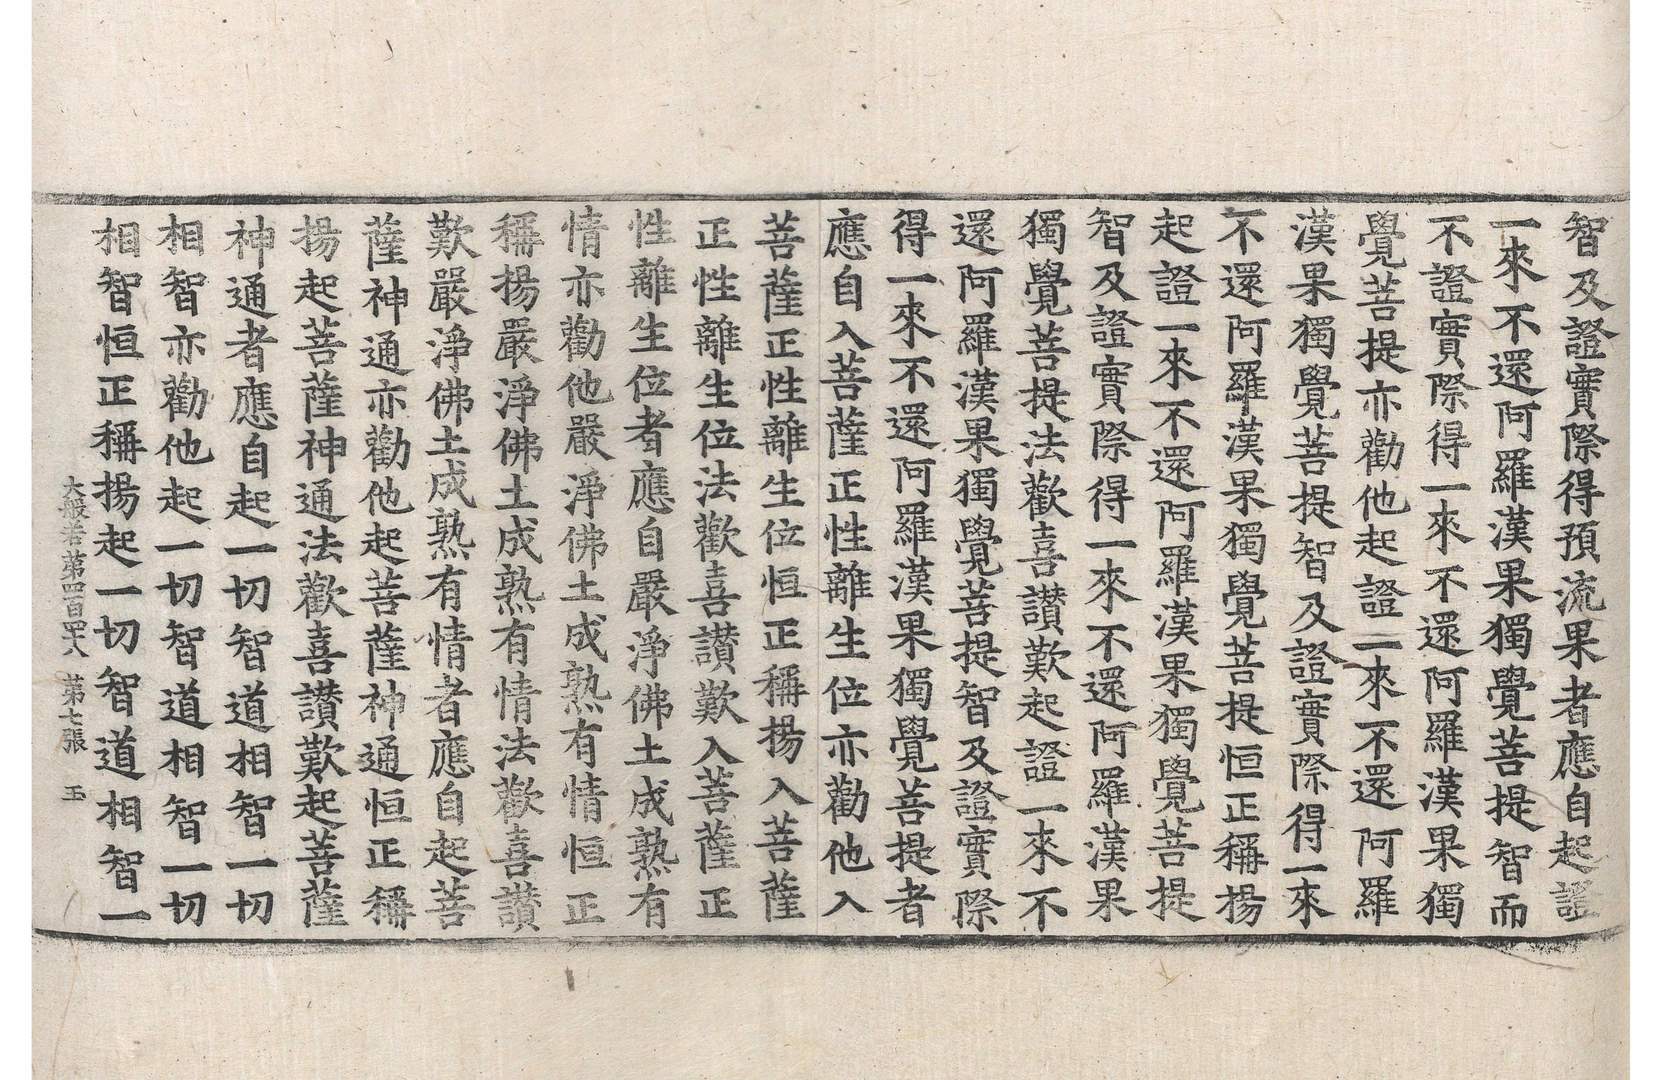 智及證實際得預流果者應自起證
一來不還阿羅漢果獨覺菩提智而
不證實際得一來不還阿羅漢果獨
覺菩提亦勸他起證一來不還阿羅
漢果獨覺菩提智及證實際得一來
不還阿羅漢果獨覺菩提恒正稱揚
起證一來不還阿羅漢果獨覺菩提
智及證實際得一來不還阿羅漢果
獨覺菩提法歡喜讚歎起證一來不
還阿羅漢果獨覺菩提智及證實際
得一來不還阿羅漢果獨覺菩提者
應自入菩薩正性離生位亦勸他入
菩薩正性離生位恒正稱揚入菩薩
正性離生位法歡喜讚歎入菩薩正
性離生位者應自嚴淨佛土成熟有
情亦勸他嚴淨佛土成熟有情恒正
稱揚嚴淨佛土成熟有情法歡喜讚
歎嚴淨佛土成熟有情者應自起菩
薩神通亦勸他起菩薩神通恒正稱
揚起菩薩神通法歡喜讚歎起菩薩
神通者應自起一切智道相智一切
相智亦勸他起一切智道相智一切
相智恒正稱揚起一切智道相智一
大般若第四百四十八 第七張 玉